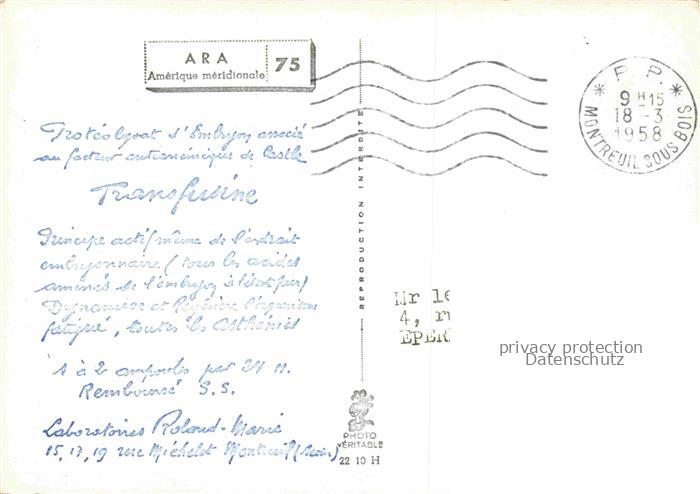 ARA
Amérique méridionale
75
P. P.
9 H 15
18 -3
1958
MONTREUIL SOUS BOIS
Protéolysat d'Embryon associé
au facteur antianémique de Castle
Transfusine
Principe actif même de l'extrait
embryonnaire (tous les acides
aminés de l'embryon à l'état pur)
Dynamise et Régénère l'organisme
fatigué, toutes les asthénies
1 à 2 ampoules par 24 H.
Remboursé S.S.
Laboratoires Roland-Marie
15, 17, 19 rue Michelet Montreuil (Seine)
REPRODUCTION INTERDITE
PHOTO
VÉRITABLE
22 10 H
Mr le
4, ru
EPER
privacy protection
Datenschutz